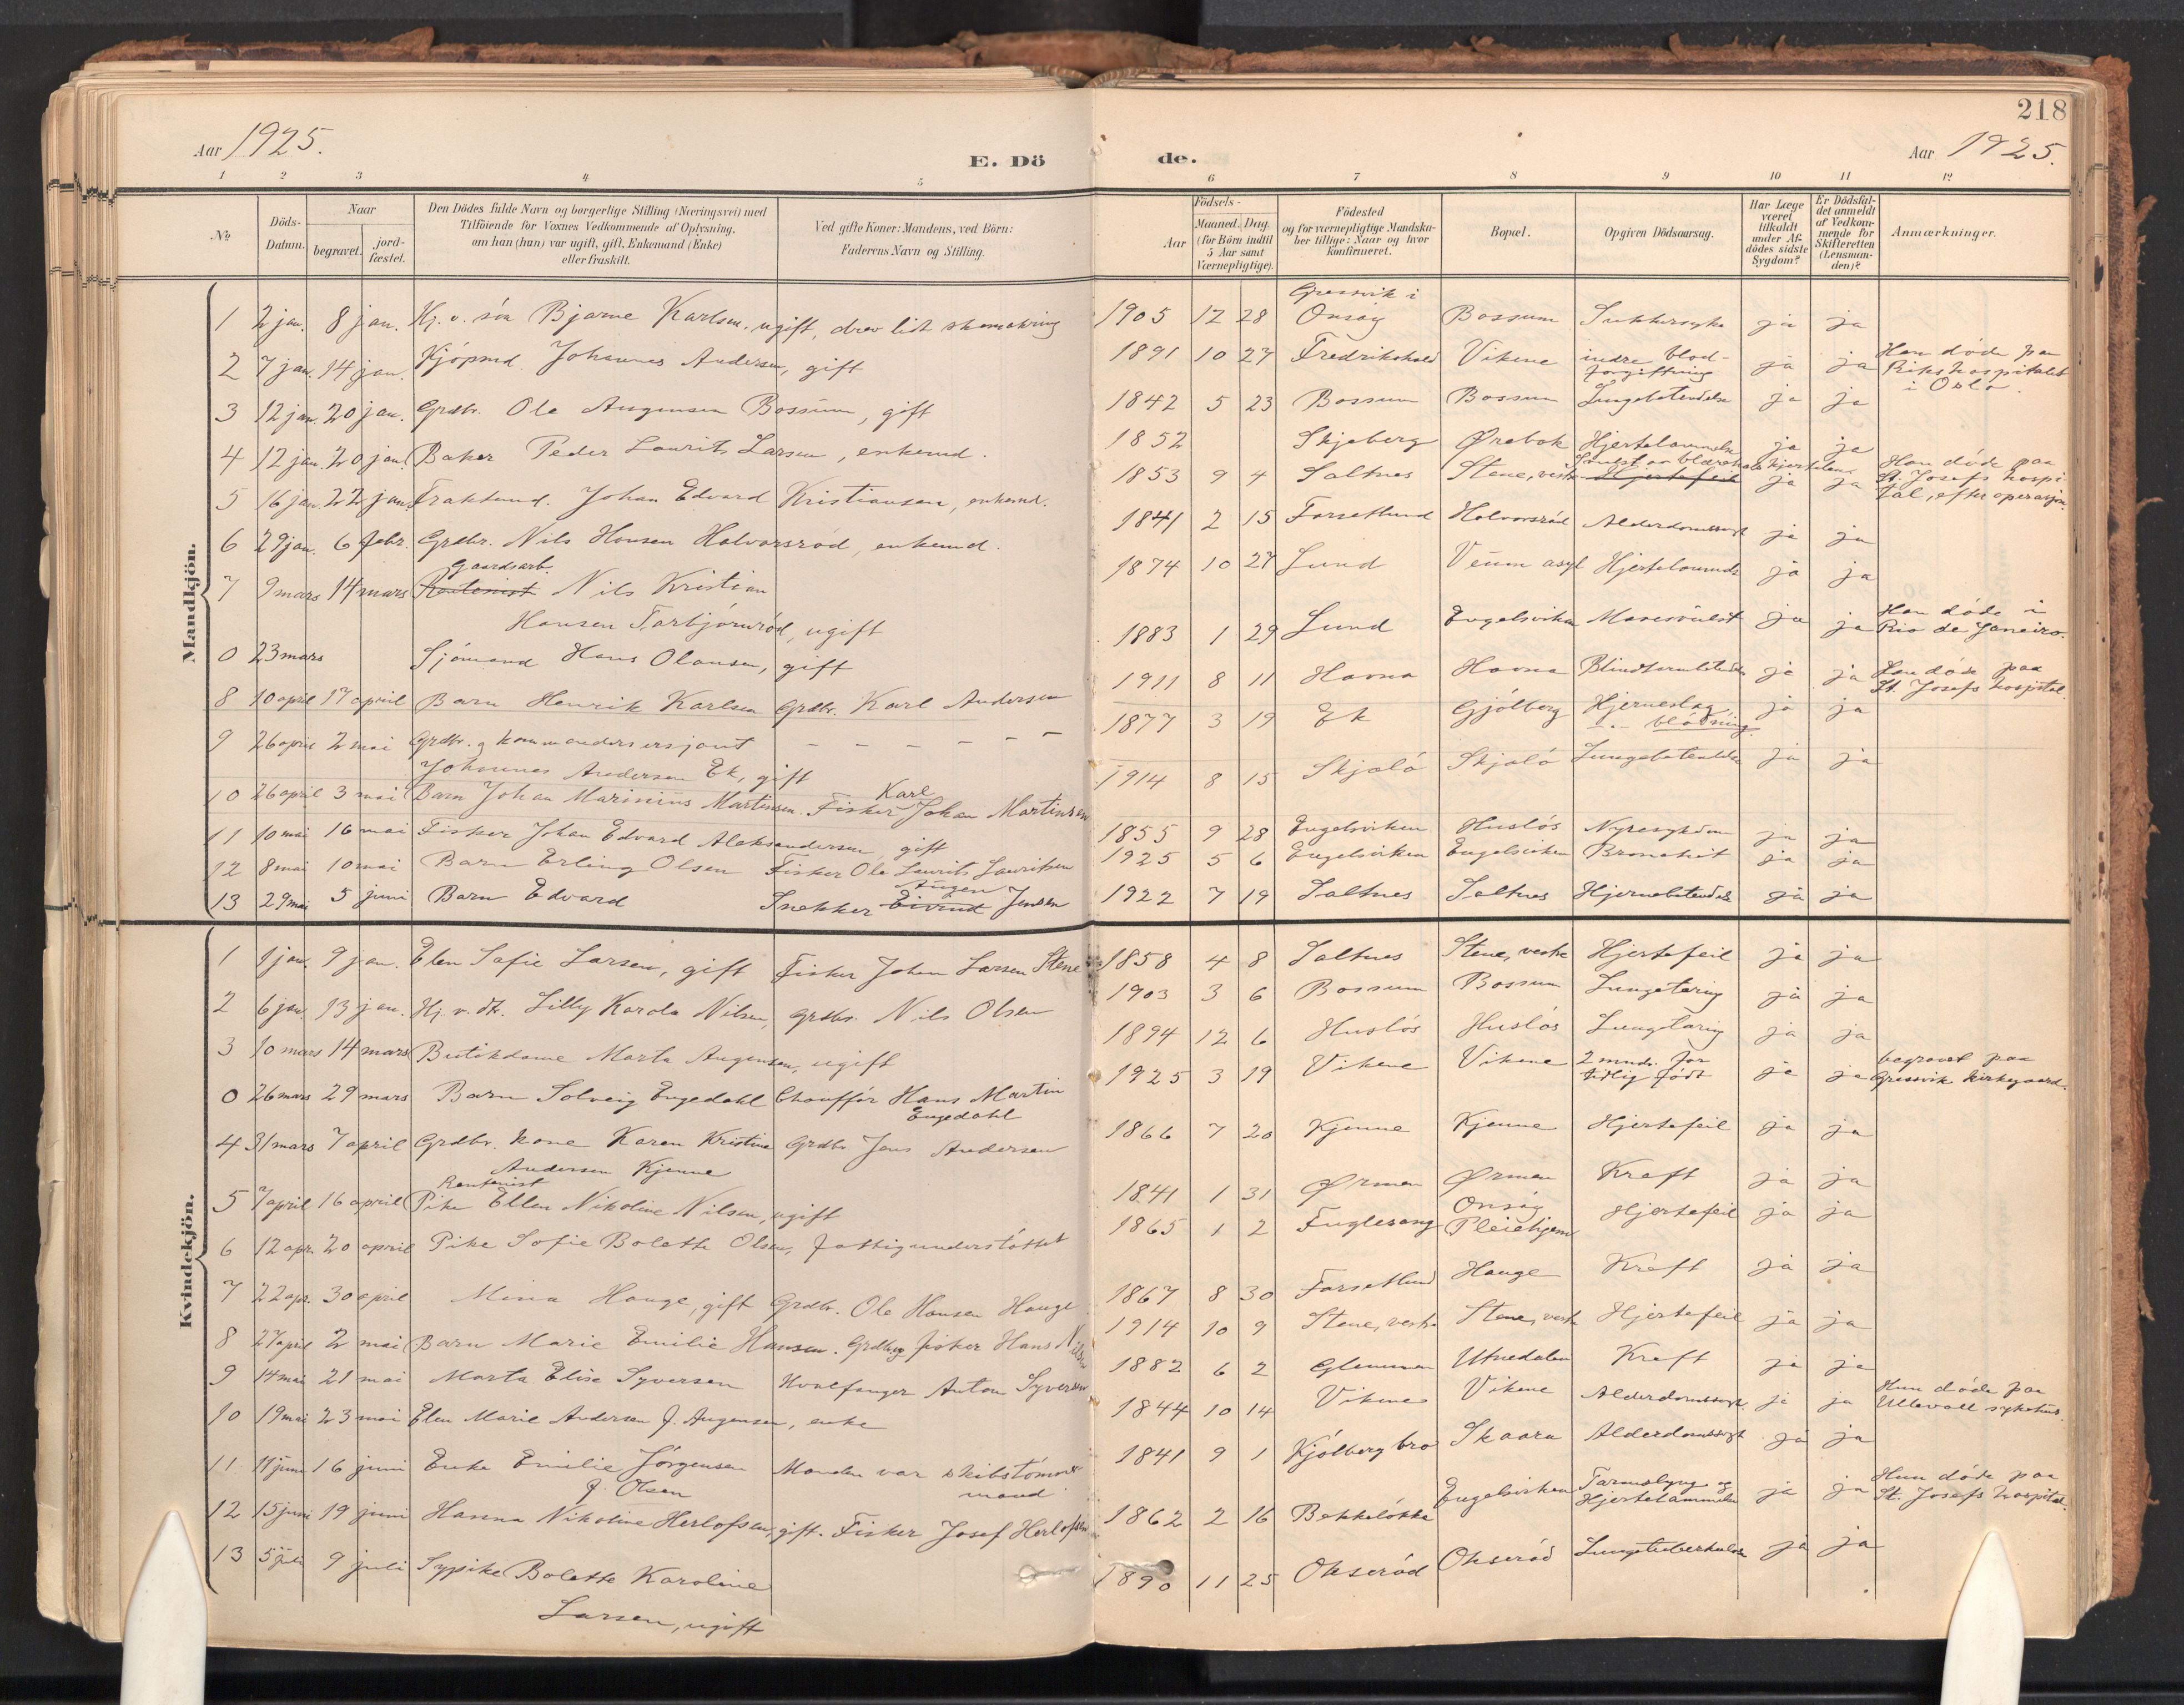 218
Aar 1925.
E. Dö
de.
Aar 1925.
1 2 3 4 5 6 7 8 9 10 11 12
№
Döds-Datum.
Naar
begravet.
jord-fæstet.
Den Dödes fulde Navn og borgerlige Stilling (Næringsvei) med
Tilföiende for Voxnes Vedkommende af Oplysning,
om han (hun) var ugift, gift, Enkemand (Enke)
eller fraskilt.
Ved gifte Koner: Mandens, ved Börn:
Faderens Navn og Stilling.
Födsels-
Aar
Maaned. Dag.
(for Börn indtil
5 Aar samt
Værnepligtige).
Födested
og for værnepligtige Mandska-
ber tillige: Naar og hvor
konfirmeret.
Bopæl.
Opgiven Dödsaarsag.
Har Læge
været
tilkaldt
under Af-
dödes sidste
Sygdom?
Er Dödsfal-
det anmeldt
af Vedkom-
mende for
Skifteretten
(Lensman-
den)?
Anmærkninger.
Mandkjön.
1 2 jan. 8 jan. Hj. v. søn Bjarne Karlsen, ugift, drev lidt skomakring 1905 12 28 Gressvik i Onsøy Bossum Sukkersyke ja ja
2 7 jan. 14 jan. Kjøpmd. Johannes Andersen, gift 1891 10 27 Fredrikshald Vikene indre blod-forgiftning ja ja Han døde paa Rikshospitalet i Oslo.
3 12 jan. 20 jan. Grdbr. Ole Augensen Bossum, gift 1842 5 23 Bossum Bossum Lungebetendelse ja ja
4 12 jan. 20 jan. Baker Peder Laurits Larsen, enkemd. 1852 Skjeberg Ørebek Hjertelammelse ja ja
5 16 jan. 22 jan. Johan Edvard Kristiansen, enkemd. 1853 9 4 Saltnes Stene, vestre Hjertefeil ja ja Han døde paa St. Josefs hospital, efter operasjon.
6 29 jan. 6 febr. Grdbr. Nils Hansen Halvorsrød, enkemd. 1841 2 15 Forsetlund Halvorsrød Alderdomssvgt ja ja
7 9 mars 14 mars Gaardsarb. Rentenist Nils Kristian
Hansen Torbjørnrød, ugift 1874 10 27 Lund Veum asyl Hjertelammelse ja ja
0 23 mars Sjømand Hans Olausen, gift 1883 1 29 Lund Engelsviken Mavesvulst ja ja Han døde i Rio de Janeiro.
8 10 april 17 april Barn Henrik Karlsen Grdbr. Karl Andersen 1911 8 11 Havna Havna Blindtarmbetendelse ja ja Han døde paa St. Josefs hospital.
9 26 april 2 mai Grdbr. og kommandersersjant – – – – – –
Johannes Andersen Ek, gift 1877 3 19 Ek Gjølberg Hjerneslag -"- blødning ja ja
10 26 april 3 mai Barn Johan Marinius Martinsen. Fisker Karl Johan Martinsen 1914 8 15 Skjælø Skjælø Lungebetendelse ja ja
11 10 mai 16 mai Fisker Johan Edvard Aleksandersen, gift 1855 9 28 Engelsviken Husløs Nyresykdom ja ja
12 8 mai 10 mai Barn Erling Olsen Fisker Ole Laurits Lauritsen 1925 5 6 Engelsviken Engelsviken Bronchit ja ja
13 29 mai 5 juni Barn Edvard Snekker Eivind Augen Jensen 1922 7 19 Saltnes Saltnes Hjernebetendelse ja ja
Kvindekjön.
1 1 jan. 9 jan. Elen Sofie Larsen, gift Fisker Johan Larsen Stene 1858 4 8 Saltnes Stene, vestre Hjertefeil ja ja
2 6 jan. 13 jan. Hj. v. dt. Lilly Karola Nilsen, Grdbr. Nils Olsen 1903 3 6 Bossum Bossum Lungetæring ja ja
3 10 mars 14 mars Butikdame Marta Augensen, ugift 1894 12 6 Husløs Husløs Lungetæring ja ja
0 26 mars 29 mars Barn Solveig Engedahl Chauffør Hans Martin Engedahl 1925 3 19 Vikene Vikene 2 mndr. for tidlig født ja ja begravet paa Gressvik kirkegaard.
4 31 mars 7 april Grdbr. kone Karen Kristine Andersen Kjenne Grdbr. Jens Andersen 1866 7 20 Kjenne Kjenne Hjertefeil ja ja
5 7 april 16 april Rentenist Pike Ellen Nikoline Nilsen, ugift 1841 1 31 Ørmen Ørmen Kreft ja ja
6 12 apr. 20 april Pike Sofie Bolette Olsen, fattigunderstøttet 1865 1 2 Fuglesang Onsøy Pleiehjem Hjertefeil ja ja
7 22 apr. 30 april Mina Hauge, gift Grdbr. Ole Hansen Hauge 1867 8 30 Forsetlund Hauge Kreft ja ja
8 27 april 2 mai Barn Marie Emilie Hansen. Grdbr. og fisker Hans Nilsen 1914 10 9 Stene, vestre Stene, vestre Hjertefeil ja ja
9 14 mai 21 mai Marta Elise Syversen Hvalfanger Anton Syversen 1882 6 2 Glemmen Utnedalen Kreft ja ja
10 19 mai 23 mai Elen Marie Andersen f. Augensen, enke 1844 10 14 Vikene Vikene Alderdomssvgt. ja ja Hun døde paa Ullevaal sykehus.
11 11 juni 16 juni Enke Emilie Jørgensen f. Olsen Manden var skibstømmermand 1841 9 1 Kjølberg bro Skaara Alderdomssvgt ja ja
12 15 juni 19 juni Hanna Nikoline Herlofsen, gift. Fisker Josef Herlofsen 1862 2 16 Bekkeløkka Engelsviken Tarmslyng og Hjertelammelse ja ja Hun døde paa St. Josefs hospital.
13 5 juli 9 juli Sypike Bolette Karoline
Larsen, ugift 1890 11 25 Okserød Okserød Lungetuberkulose ja ja